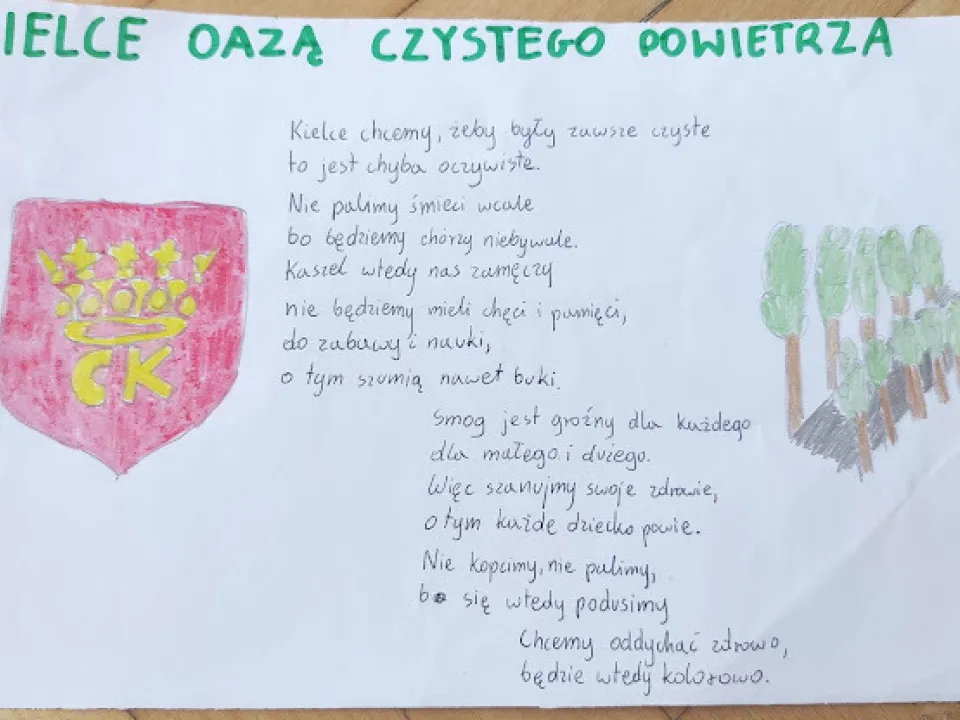 IELCE OAZĄ CZYSTEGO POWIETRZA
Kielce chcemy, żeby były zawsze czyste
to jest chyba oczywiste.
Nie palimy śmieci wcale
bo będziemy chorzy niebywale.
Kaszel wtedy nas zamęczy
nie będziemy mieli chęci i pamięci,
do zabawy i nauki,
o tym szumią nawet buki.
Smog jest groźny dla każdego
dla małego i dużego.
Więc szanujmy swoje zdrowie,
o tym każde dziecko powie.
Nie kopcimy, nie palimy,
bo się wtedy podusimy
Chcemy oddychać zdrowo,
będzie wtedy kolorowo.
CK